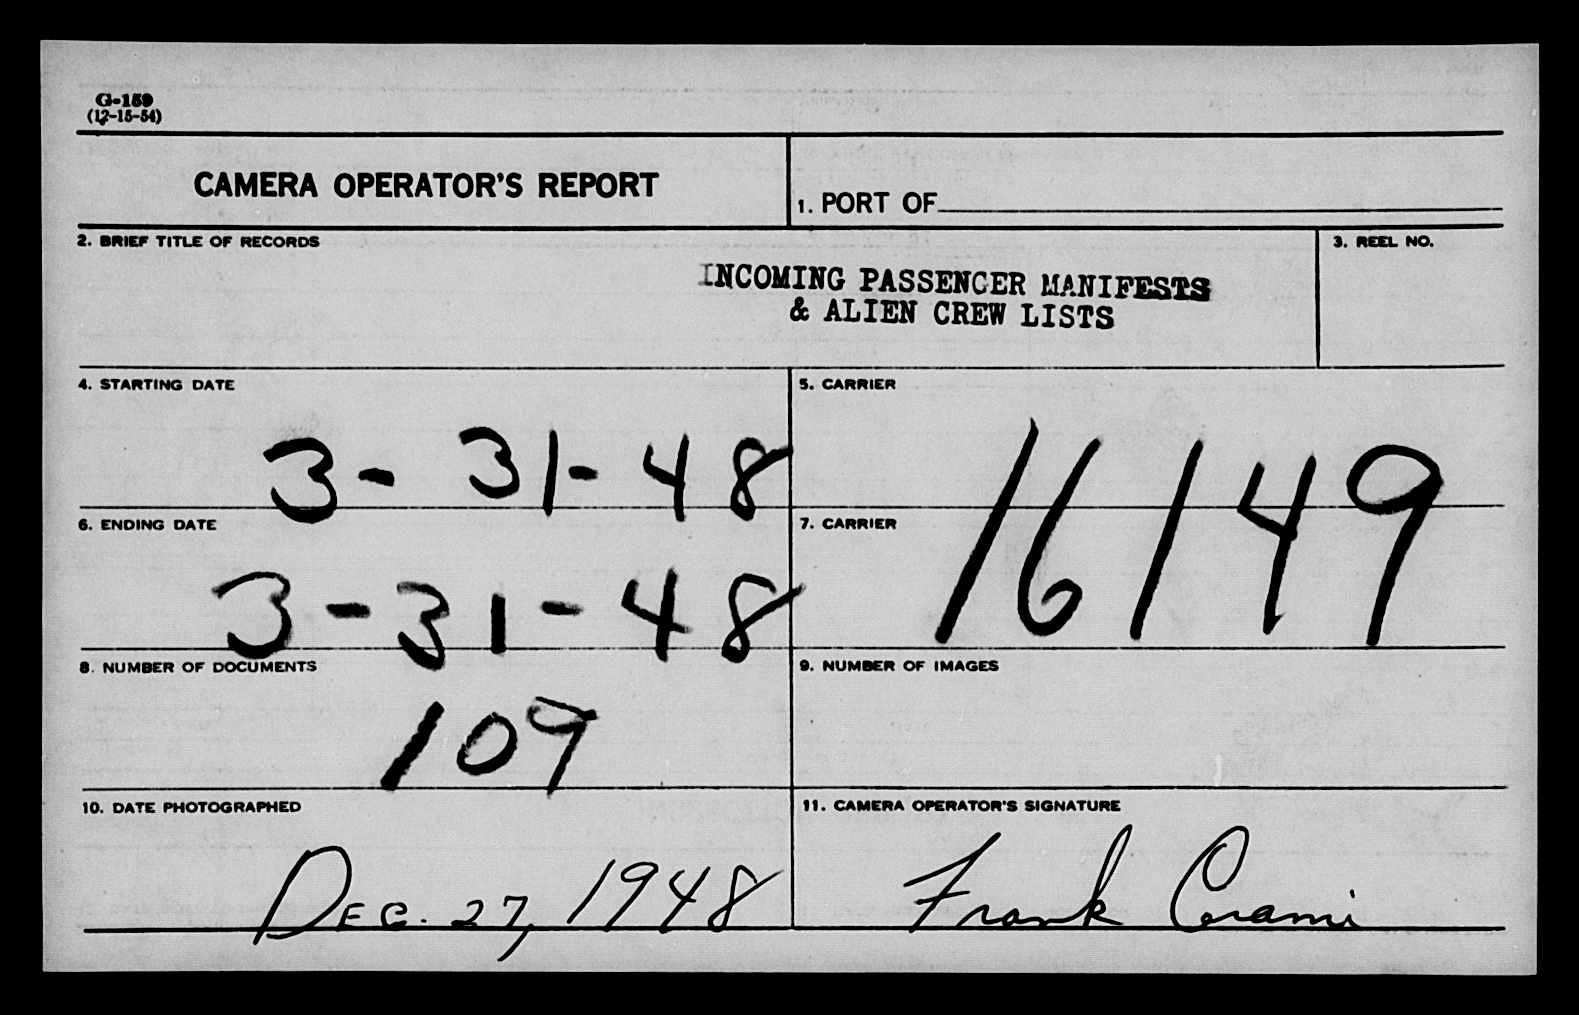 G-159
(12-15-54)
CAMERA OPERATOR'S REPORT
1. PORT OF
2. BRIEF TITLE OF RECORDS
INCOMING PASSENGER MANIFESTS
& ALIEN CREW LISTS
3. REEL NO.
4. STARTING DATE
3-31-48
5. CARRIER
16149
6. ENDING DATE
3-31-48
7. CARRIER
8. NUMBER OF DOCUMENTS
109
9. NUMBER OF IMAGES
10. DATE PHOTOGRAPHED
DEC. 27, 1948
11. CAMERA OPERATOR'S SIGNATURE
Frank Cerami